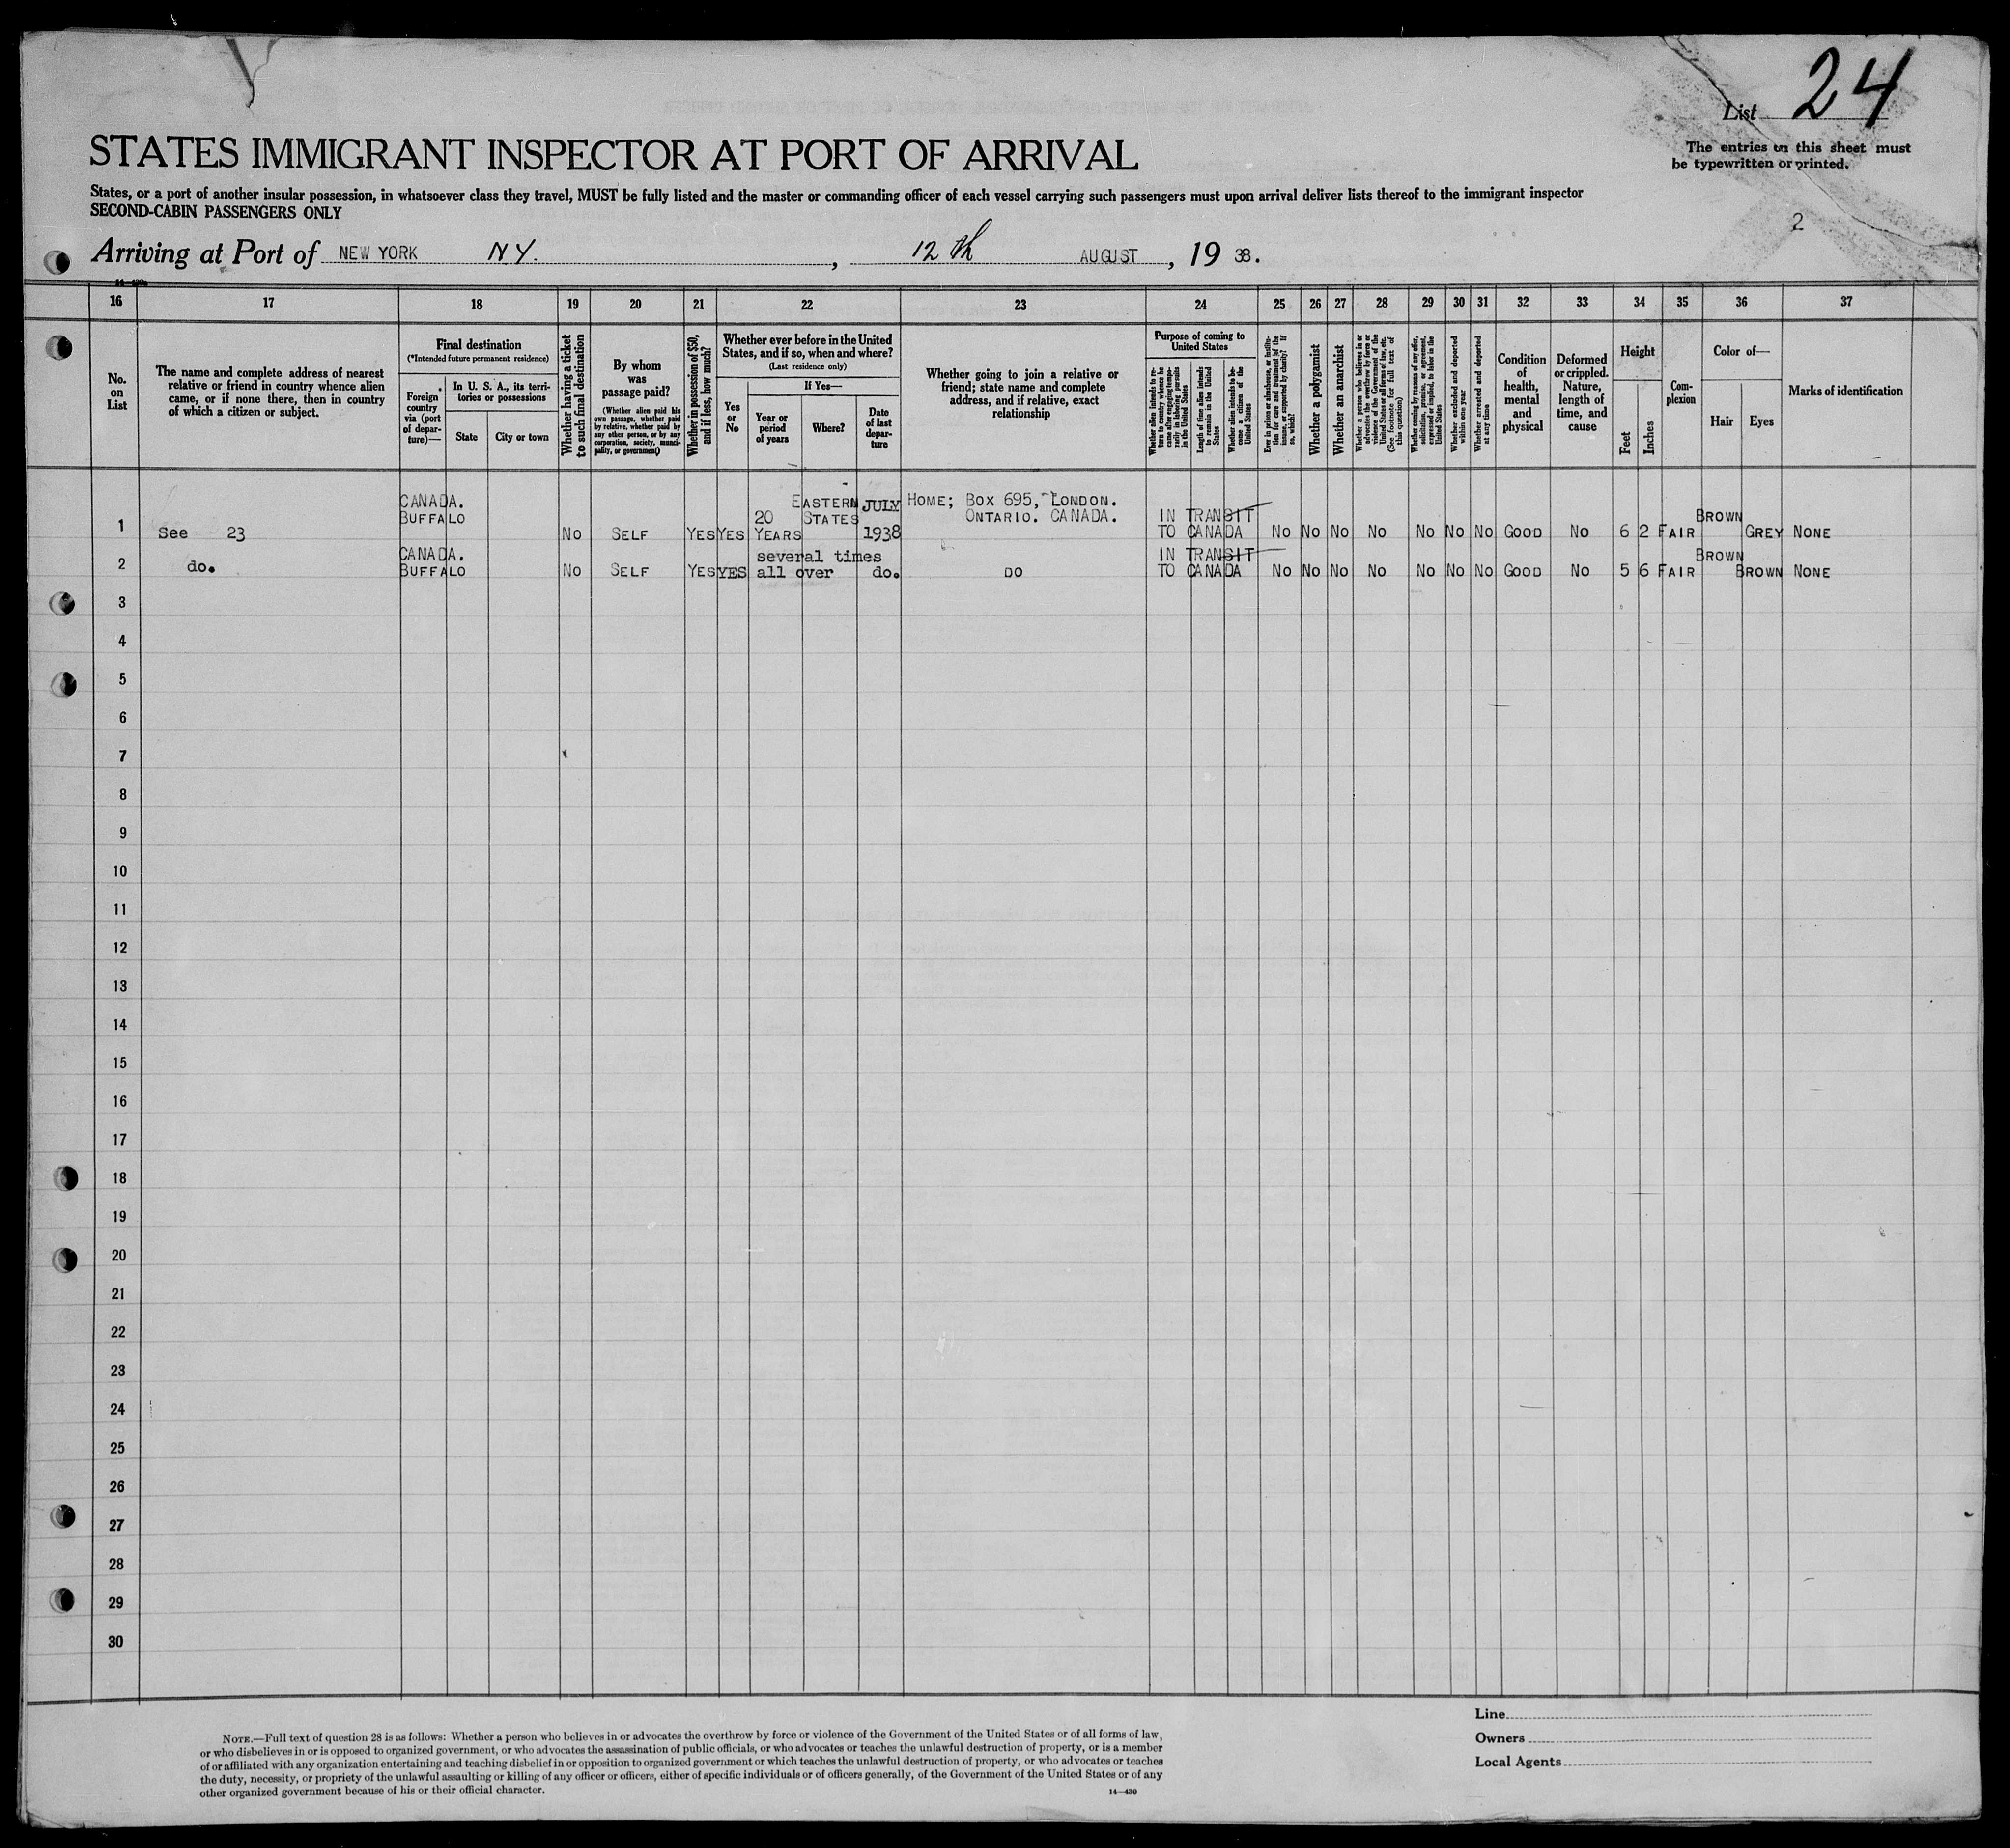 List 24
The entries on this sheet must
be typewritten or printed.
STATES IMMIGRANT INSPECTOR AT PORT OF ARRIVAL
States, or a port of another insular possession, in whatsoever class they travel, MUST be fully listed and the master or commanding officer of each vessel carrying such passengers must upon arrival deliver lists thereof to the immigrant inspector
SECOND-CABIN PASSENGERS ONLY
2
Arriving at Port of NEW YORK NY. , 12th AUGUST , 19 38.
16 17 18 19 20 21 22 23 24 25 26 27 28 29 30 31 32 33 34 35 36 37
No.
on
List
The name and complete address of nearest
relative or friend in country whence alien
came, or if none there, then in country
of which a citizen or subject.
Final destination
(*Intended future permanent residence)
Foreign
country
via (port
of depar-
ture)—
In U. S. A., its terri-
tories or possessions
State
City or town
Whether having a ticket
to such final destination
By whom
was
passage paid?
(Whether alien paid his
own passage, whether paid
by relative, whether paid by
any other person, or by any
corporation, society, munici-
pality, or government)
Whether in possession of $50,
and if less, how much?
Whether ever before in the United
States, and if so, when and where?
(Last residence only)
Yes
or
No
If Yes—
Year or
period
of years
Where?
Date
of last
depar-
ture
Whether going to join a relative or
friend; state name and complete
address, and if relative, exact
relationship
Purpose of coming to
United States
Whether alien intends to re-
turn to country whence he
came after engaging tempo-
rarily in laboring pursuits
in the United States
Length of time alien intends
to remain in the United
States
Whether alien intends to be-
come a citizen of the
United States
Ever in prison or almshouse, or institu-
tion for care and treatment of the
insane, or supported by charity? If
so, which?
Whether a polygamist
Whether an anarchist
Whether a person who believes in or
advocates the overthrow by force or
violence of the Government of the
United States or all forms of law, etc.
(See footnote for full text of
this question)
Whether coming by reasons of any offer,
solicitation, promise, or agreement,
expressed or implied, to labor in the
United States
Whether excluded and deported
within one year
Whether arrested and deported
at any time
Condition
of
health,
mental
and
physical
Deformed
or crippled.
Nature,
length of
time, and
cause
Height
Feet
Inches
Com-
plexion
Color of—
Hair
Eyes
Marks of identification
CANADA. EASTERN JULY HOME; BOX 695, LONDON.
BUFFALO 20 STATES ONTARIO. CANADA. IN TRANSIT BROWN
1 See 23 NO SELF YES YES YEARS 1938 TO CANADA NO NO NO NO NO NO NO GOOD NO 6 2 FAIR GREY NONE
CANADA. several times IN TRANSIT BROWN
2 do. BUFFALO NO SELF YES YES all over do. DO TO CANADA NO NO NO NO NO NO NO GOOD NO 5 6 FAIR BROWN NONE
3
4
5
6
7
8
9
10
11
12
13
14
15
16
17
18
19
20
21
22
23
24
25
26
27
28
29
30
NOTE.—Full text of question 28 is as follows: Whether a person who believes in or advocates the overthrow by force or violence of the Government of the United States or of all forms of law,
or who disbelieves in or is opposed to organized government, or who advocates the assassination of public officials, or who advocates or teaches the unlawful destruction of property, or is a member
of or affiliated with any organization entertaining and teaching disbelief in or opposition to organized government or which teaches the unlawful destruction of property, or who advocates or teaches
the duty, necessity, or propriety of the unlawful assaulting or killing of any officer or officers, either of specific individuals or of officers generally, of the Government of the United States or of any
other organized government because of his or their official character.
14—430
Line
Owners
Local Agents